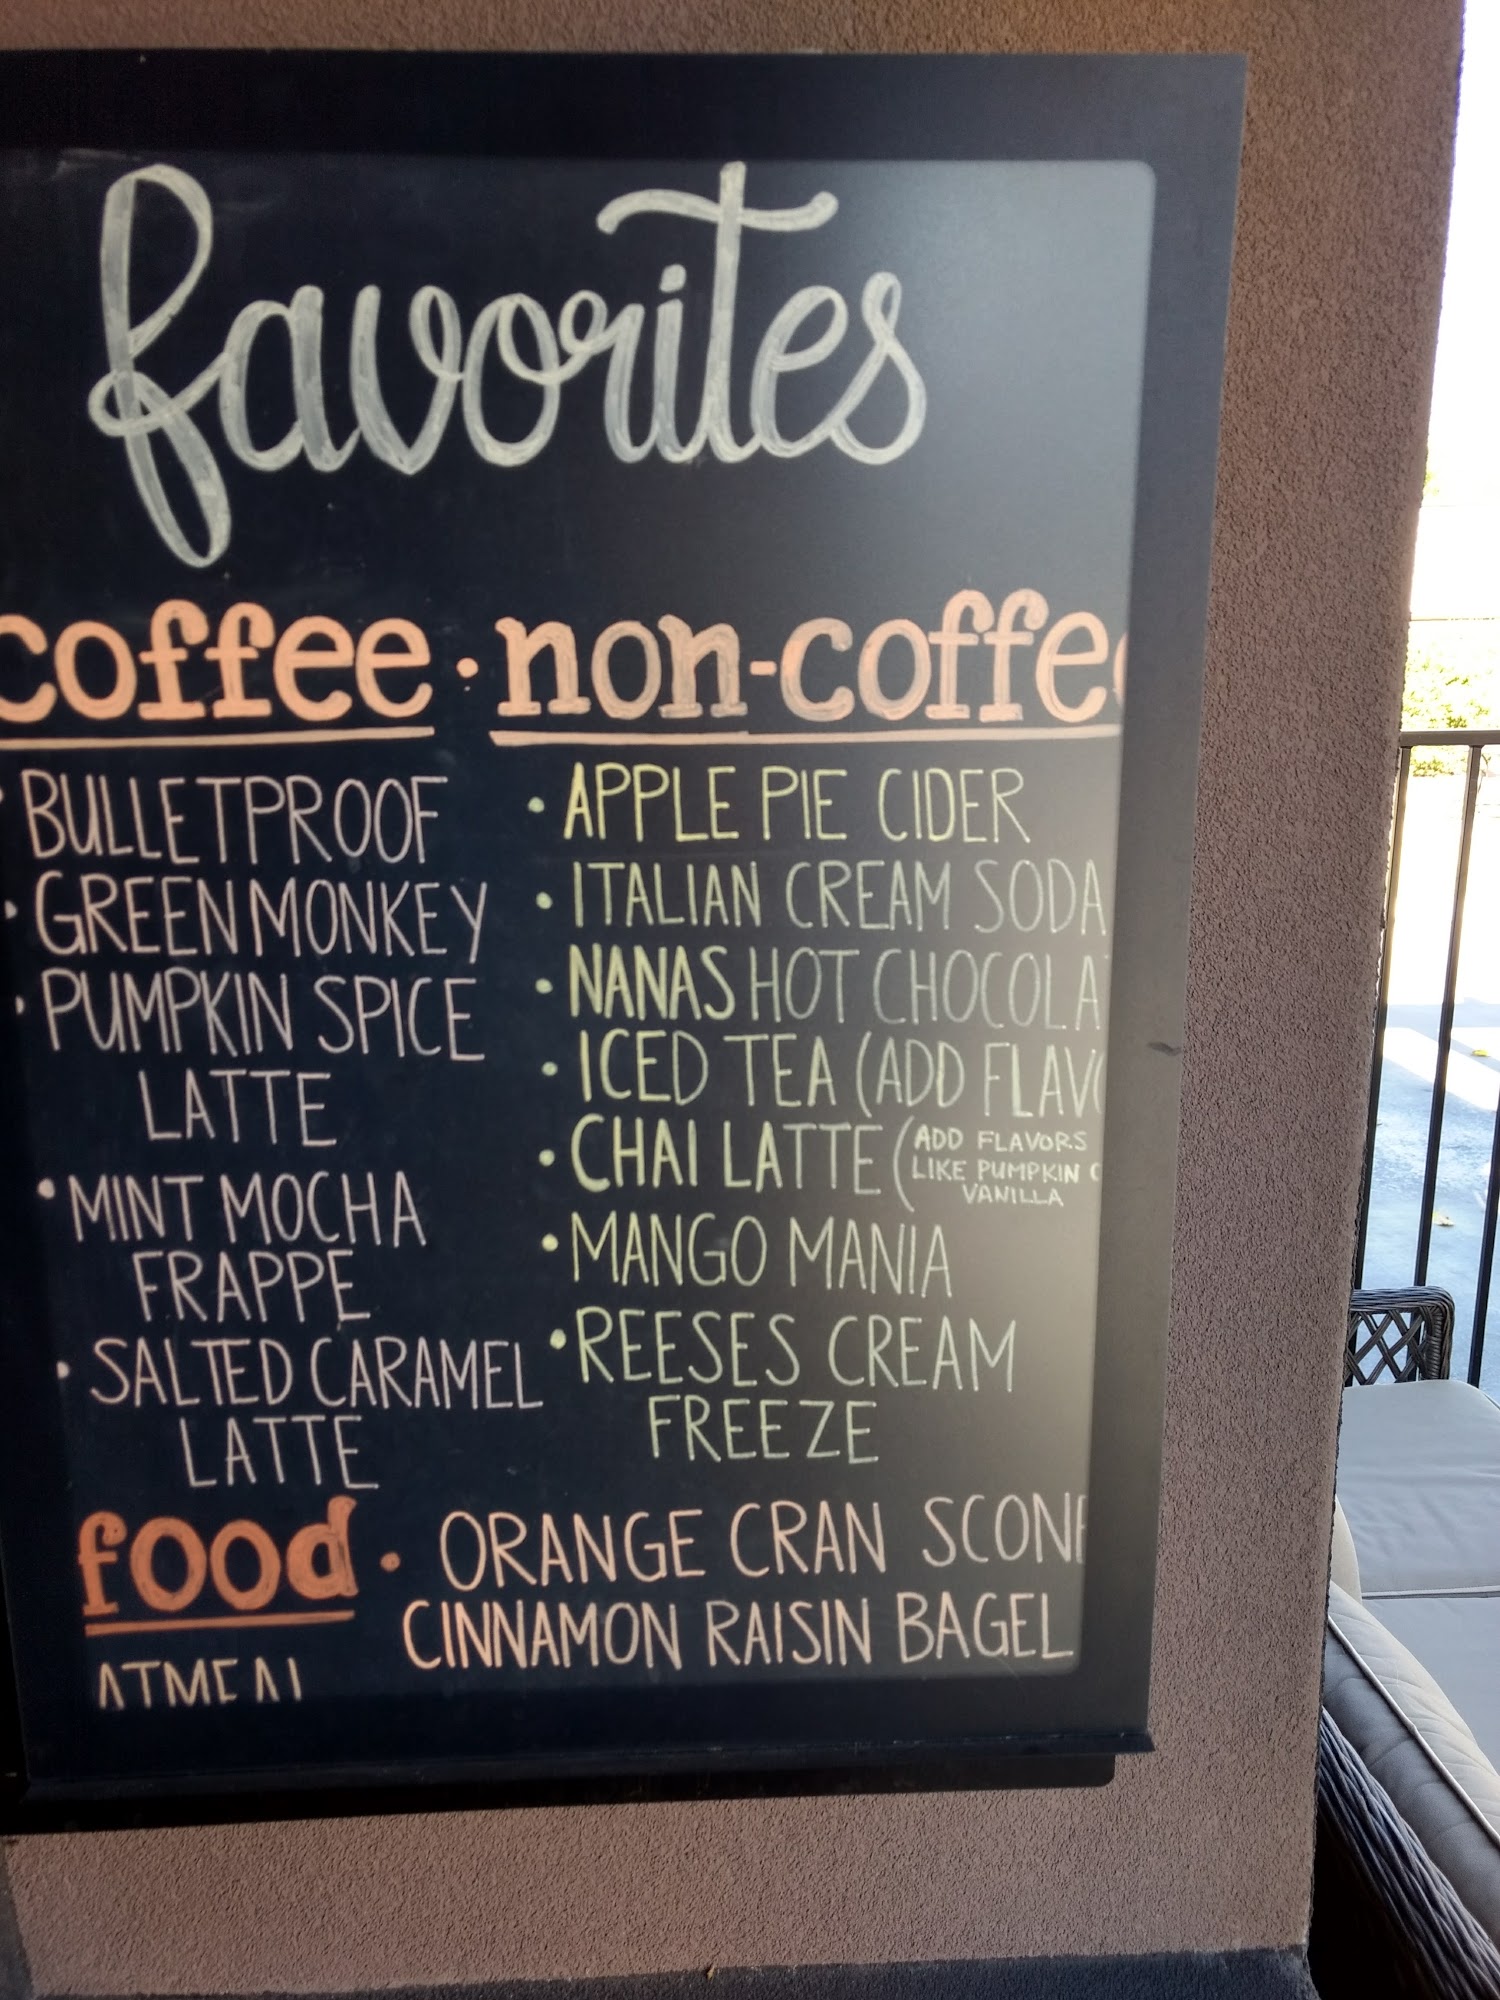 favorites
coffee · non-coffee
· BULLETPROOF
· GREEN MONKEY
· PUMPKIN SPICE
LATTE
· MINT MOCHA
FRAPPE
· SALTED CARAMEL
LATTE
· APPLE PIE CIDER
· ITALIAN CREAM SODA
· NANAS HOT CHOCOLA
· ICED TEA (ADD FLAVO
· CHAI LATTE (ADD FLAVORS
LIKE PUMPKIN
VANILLA
· MANGO MANIA
· REESES CREAM
FREEZE
food · ORANGE CRAN SCONE
CINNAMON RAISIN BAGEL
ATMEAL